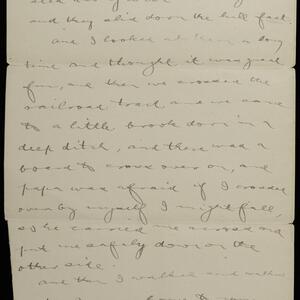 and they slid down the hill fast.
and I looked at them a long
time and thought it was good
fun, and then we crossed the
railroad track and we came
to a little brook down in a
deep ditch, and there was a
board to cross over on, and
papa was afraid if I crossed
over by myself I might fall,
so he carried me across and
put me safely down on the
other side.
and then I walked and walked